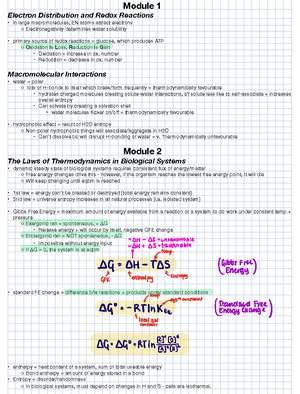 Module 1
Electron Distribution and Redox Reactions
• in large macromolecules, EN atoms attract electrons
o Electronegativity determines water solubility
• primary source of redox reactions = glucose, which produces ATP
o Oxidation Is Loss, Reduction Is Gain
• Oxidation = increase in ox. number
• Reduction = decrease in ox. number
Macromolecular Interactions
• water = polar
o lots of H-bonds to itself which break/form frequently = thermodynamically favourable
• hydrated charged molecules creating solute-water interactions, but solute less able to self-associate + increases overall entropy
• Can solvate by creating a solvation shell
• water molecules flicker on/off = thermodynamically favourable
• hydrophobic effect = result of H2O entropy
o Non-polar hydrophobic things will associate/aggregate in H2O
• Can't dissolve b/c will disrupt H-bonding of water = v. Thermodynamically unfavourable
Module 2
The Laws of Thermodynamics in Biological Systems
• dynamic steady state of biological systems requires constant flux of energy/matter
o Free energy changes drive this - however, if the organism reaches the lowest free energy point, it will die
o Will keep changing until eqbm is reached
• 1st law = energy can't be created or destroyed (total energy remains constant)
• 2nd law = universe entropy increases in all natural processes (i.e. isolated system)
• Gibbs Free Energy = maximum amount of energy available from a reaction or a system to do work under constant temp + pressure
o Exergonic rxn = spontaneous, + ΔG
• Release energy + will occur by itself, negative GFE change
o Endergonic rxn = NOT spontaneous, - ΔG
• Impossible without energy input
o If ΔG = 0, the system is at eqbm
ΔG = ΔH - TΔS
temp
enthalpy
entropy
(Gibbs Free Energy)
• standard FE change = difference b/w reactions + products under standard conditions
ΔG° = -RTlnKeq
temp
ideal gas constant
(Standard Free Energy Change)
• enthalpy = heat content of a system, sum of total useable energy
o Bond enthalpy = amount of energy stored in a bond
• Entropy = disorder/randomness
o In biological systems, must depend on changes in H and S - cells are isothermal